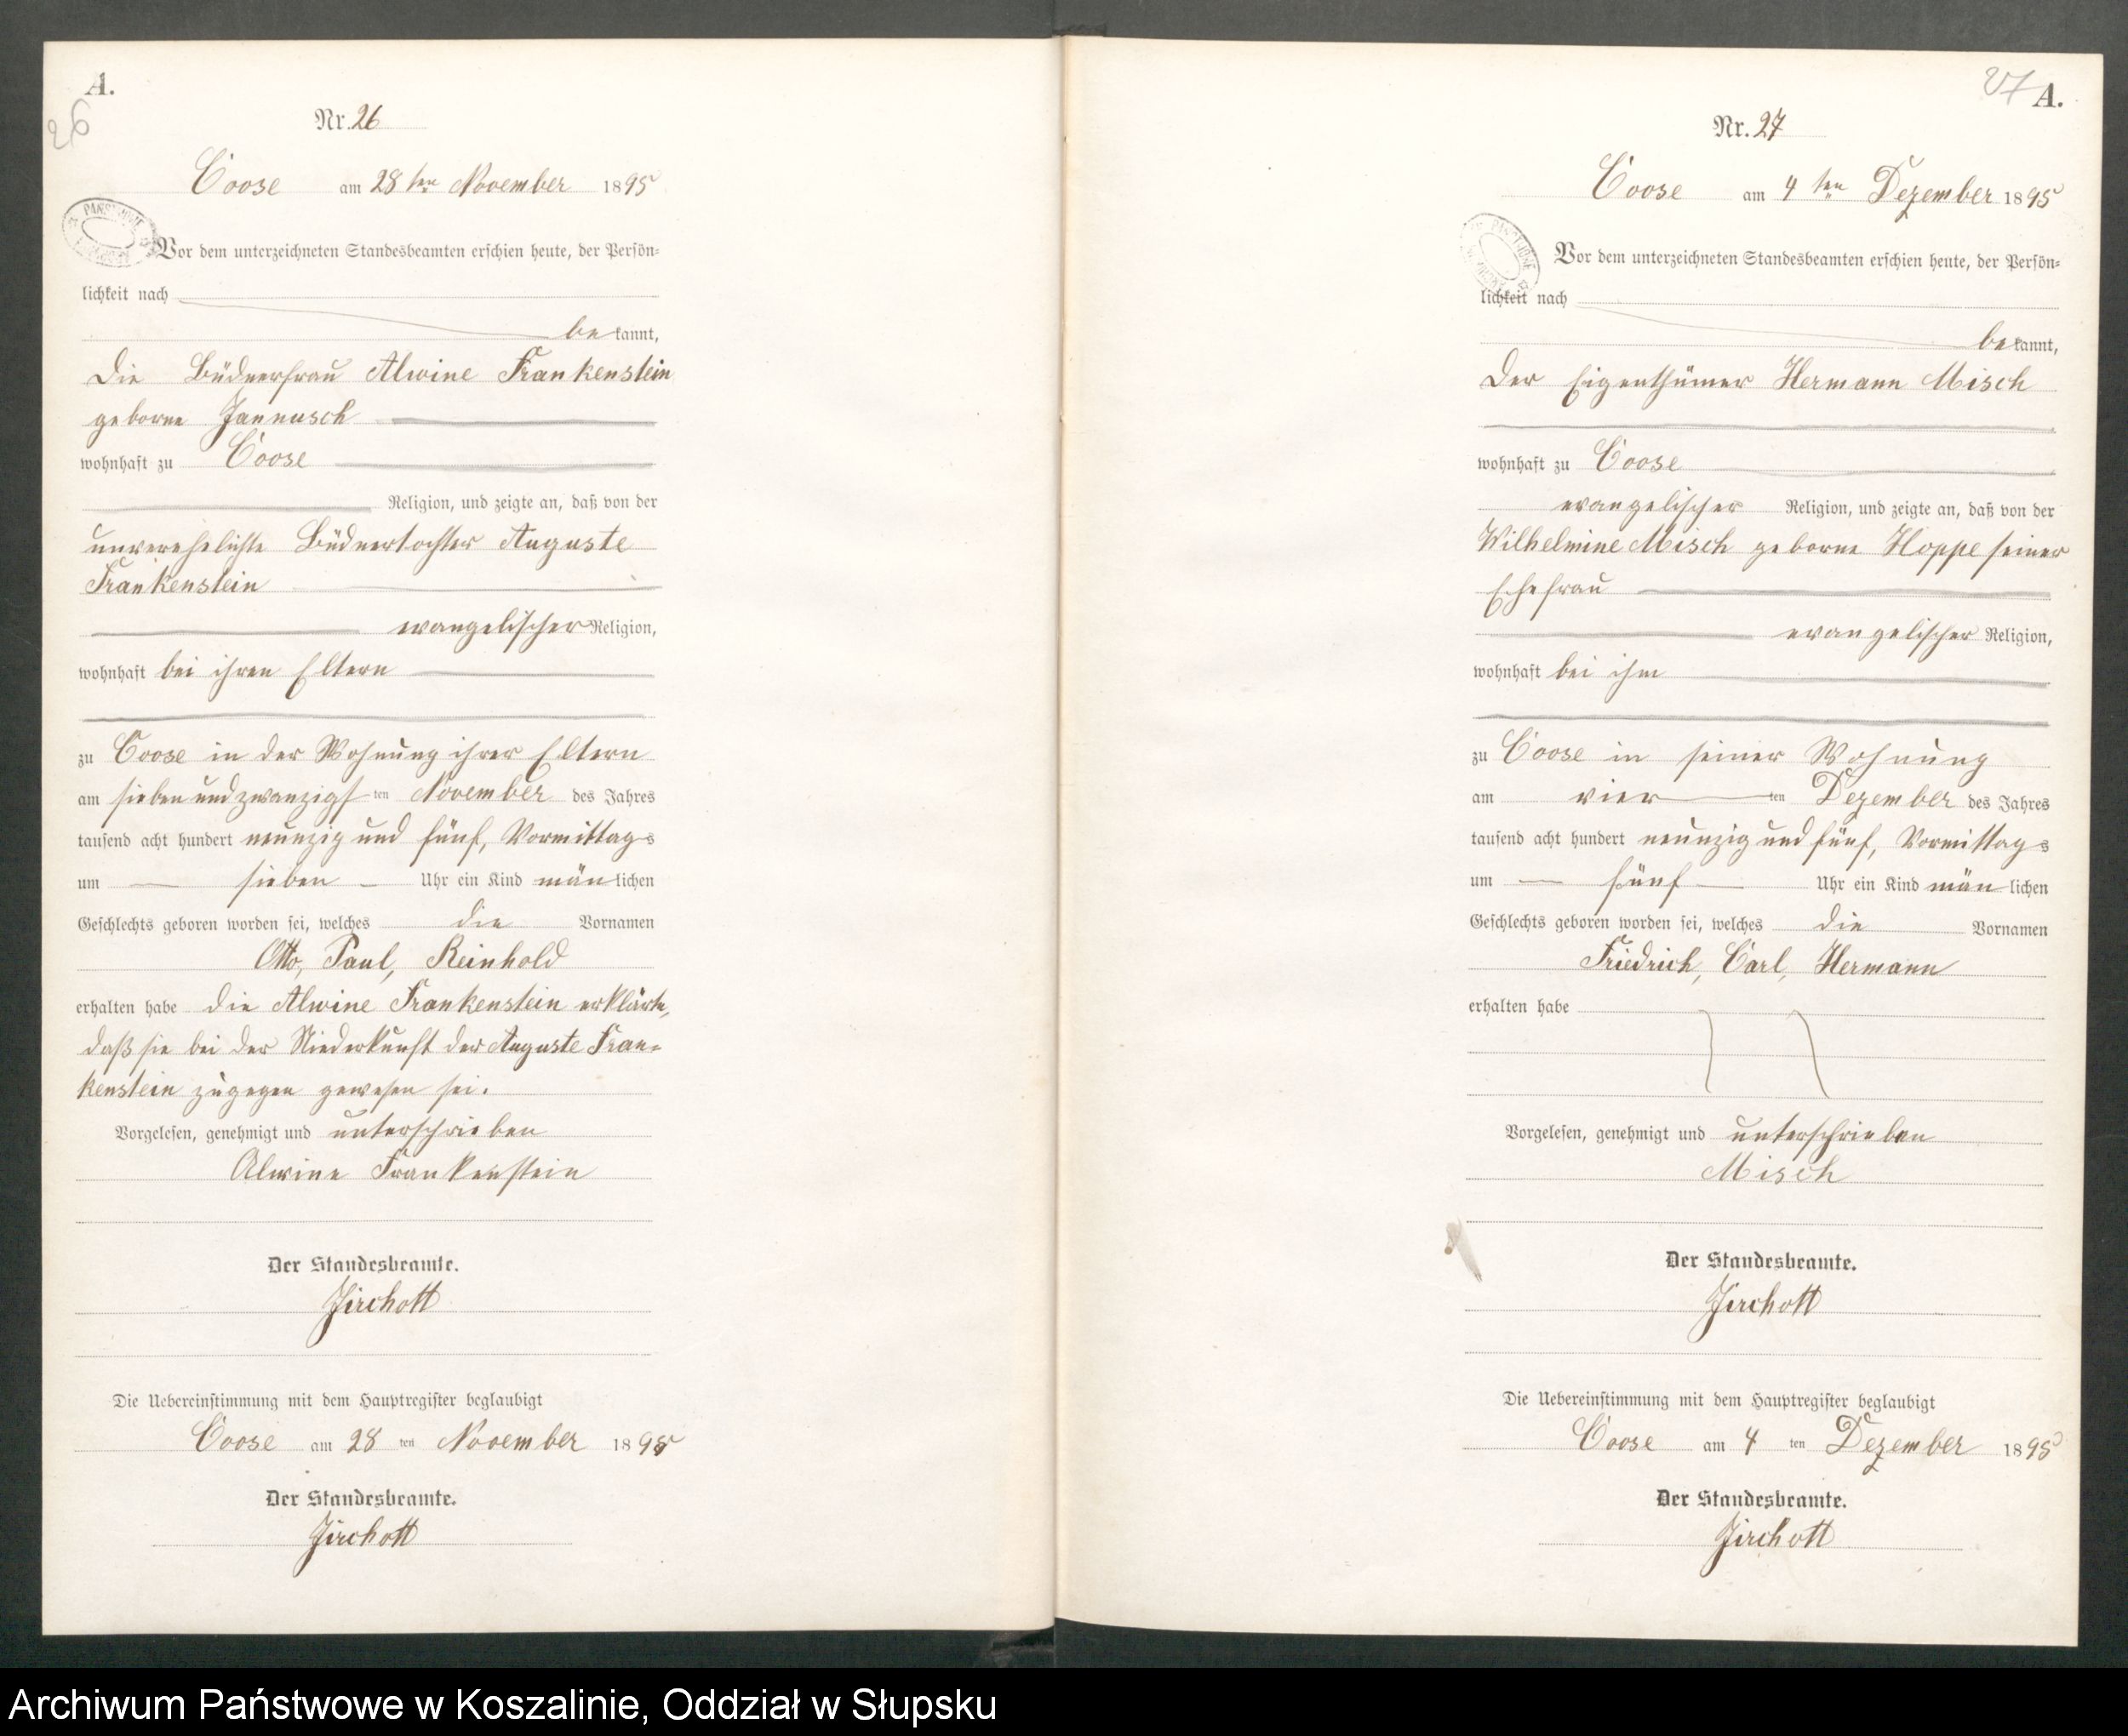 A.
26
Nr. 26
Coose am 28 ten November 1895
Vor dem unterzeichneten Standesbeamten erschien heute, der Persön=
lichkeit nach
bekannt,
die Büdnerfrau Alwine Frankenstein
geborne Jannusch
wohnhaft zu Coose
Religion, und zeigte an, daß von der
unverehelichte Büdnertochter Auguste
Frankenstein
evangelischer Religion,
wohnhaft bei ihren Eltern
zu Coose in der Wohnung ihrer Eltern
am siebenundzwanzigsten November des Jahres
tausend acht hundert neunzig und fünf, Vormittags
um sieben Uhr ein Kind mänlichen
Geschlechts geboren worden sei, welches die Vornamen
Otto, Paul, Reinhold
erhalten habe die Alwine Frankenstein erklärte,
daß sie bei der Niederkunft der Auguste Fran=
kenstein zugegen gewesen sei.
Vorgelesen, genehmigt und unterschrieben
Alwine Frankenstein
Der Standesbeamte.
Jirchott
Die Uebereinstimmung mit dem Hauptregister beglaubigt
Coose am 28 ten November 1895
Der Standesbeamte.
Jirchott
27 A.
Nr. 27
Coose am 4 ten Dezember 1895
Vor dem unterzeichneten Standesbeamten erschien heute, der Persön=
lichkeit nach
bekannt,
der Eigenthümer Hermann Misch
wohnhaft zu Coose
evangelischer Religion, und zeigte an, daß von der
Wilhelmine Misch geborne Hoppe seiner
Ehefrau
evangelischer Religion,
wohnhaft bei ihm
zu Coose in seiner Wohnung
am vier ten Dezember des Jahres
tausend acht hundert neunzig und fünf, Vormittags
um fünf Uhr ein Kind mänlichen
Geschlechts geboren worden sei, welches die Vornamen
Friedrich, Carl, Hermann
erhalten habe
Vorgelesen, genehmigt und unterschrieben
Misch
Der Standesbeamte.
Jirchott
Die Uebereinstimmung mit dem Hauptregister beglaubigt
Coose am 4 ten Dezember 1895
Der Standesbeamte.
Jirchott
Archiwum Państwowe w Koszalinie, Oddział w Słupsku